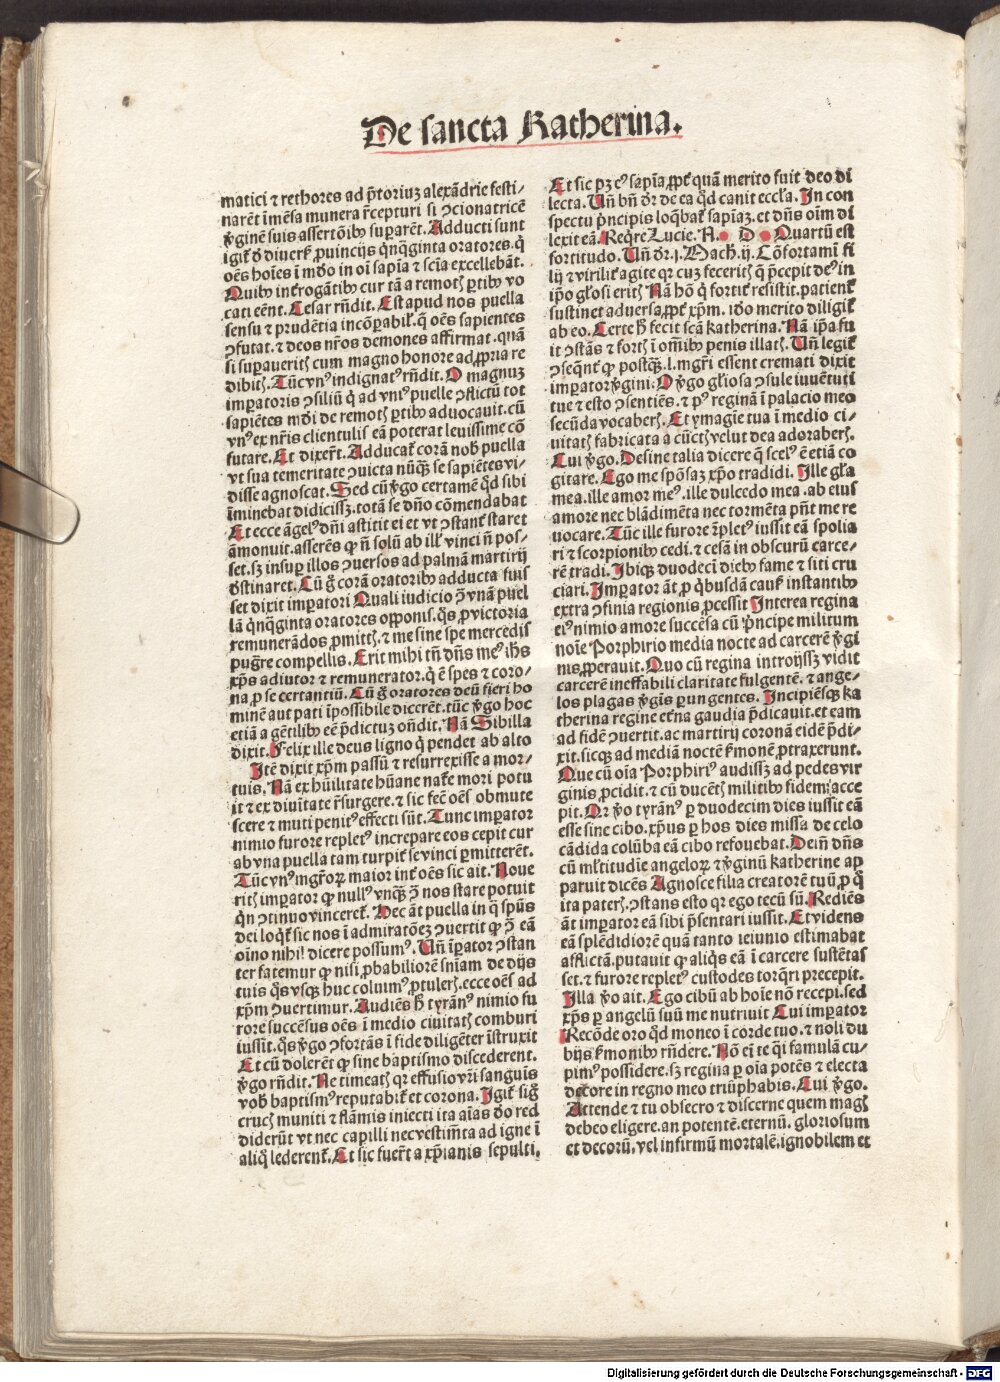 De sancta Katherina.
matici ⁊ rethores ad p̄toriuꝫ alexādrie festi⸗
narēt ī mēsa munera r̄cepturi si ꝯcionatricē
v̄ginē suis assertōibꝰ suꝑarēt. Adducti sunt
oēs hoīes ī mūdo in oī sapīa ⁊ scīa excellebāt.
cati eēnt. Cesar rn̄dit. Est apud nos puella
sensu ⁊ prudētia incōꝑabil'. q̄ oēs sapientes
ꝯfutat. ⁊ deos nr̄os demones affirmat. quā
si suꝑaueritꝭ cum magno honore ad ꝓpria re
dibitꝭ. Tūc vnꝰ indignatꝰ rn̄dit. O magnuꝫ
imꝑatoris ꝯsiliū q̇ ad vniꝰ puelle ꝯflictū tot
sapiētes mūdi de remotꝭ ꝑtibꝰ aduocauit. cū
vnꝰ ex nr̄is clientulis eā poterat leuissime cō
futare. Et dixer̄t. Adducat̄ corā nobꝭ puella
vt sua temeritate ꝯuicta nūqꝫ se sapiētes vi⸗
disse agnoscat. Sed cū v̄go certamē qd̄ sibi
īminebat didicissꝫ. totā se dn̄o cōmendabat
Et ecce āgelꝰ dn̄i astitit ei et vt ꝯstant̄ staret
āmonuit. asserēs ꝙ nō solū ab ill' vinci n̄ pos⸗
set. sꝫ insuꝑ illos ꝯuersos ad palmā martirij
d̄stinaret. Cū g̊ corā oratoribꝰ adducta fuis
set dixit imꝑatori Quali iudicio ꝯ̄ vnā puel
lā qn̄qginta oratores opponis. q̄s ꝓ victoria
remunerādos ꝓmittꝭ. ⁊ me sine spe mercedis
pugr̄e compellis. Erit mihi tn̄ dn̄s meꝰ ih̄s
xp̄s adiutor ⁊ remunerator. q̇ ē spes ⁊ coro⸗
na ꝓ se certantiū. Cū g̊ oratores deū fieri ho
minē aut pati īpossibile dicerēt. tūc v̄go hoc
etiā a gētilibꝰ eē p̄dictuꝫ on̄dit. Nā Sibilla
dixit. Felix ille deus ligno q̇ pendet ab alto
Itē dixit xp̄m passū ⁊ resurrexisse a mor⸗
tuis. Nā ex hūilitate hūane nat̄e mori potu
it ⁊ ex diuītate r̄surgere. ⁊ sic fec̄ oēs obmute
scere ⁊ muti penitꝰ effecti sūt. Tunc imꝑator
nimio furore repletꝰ increpare eos cepit cur
ab vna puella tam turpit̄ se vinci ꝑmitterēt.
Tūc vnꝰ mgr̄oꝝ maior int̄ oēs sic ait. Noue
ritꝭ imꝑator ꝙ nullꝰ vnqꝫ ꝯ̄ nos stare potuit
qn̄ ꝯtinuo vinceret̄. Hec āt puella in q̄ spūs
dei loqt̄ sic nos ī admiratōeꝫ ꝯuertit ꝙ ꝯ̄ eā
oīno nihil dicere possumꝰ. Un̄ īꝑator ꝯstan
ter fatemur ꝙ nisi ꝓbabiliorē sn̄iam de dijs
tuis q̄s vsqꝫ huc coluimꝰ ꝓtulerꝭ. ecce oēs ad
xp̄m ꝯuertimur. Audiēs hꝭ tyrānꝰ nimio fu
rore succēsus oēs ī medio ciuitatꝭ comburi
iussit. q̄s v̄go ꝯfortās ī fide diligēter īstruxit
Et cū dolerēt ꝙ sine baptismo discederent.
v̄go rn̄dit. Ne timeatꝭ qꝛ effusio vr̄i sanguīs
vobꝭ baptismꝰ reputabit̄ et corona. Igit̄ sig̊
crucꝭ muniti ⁊ flāmis iniecti ita aīas dn̄o red
diderūt vt nec capilli nec vestim̄ta ad igne ī
aliq̊ lederent̄. Et sic fuer̄t a xp̄ianis sepulti.
Et sic pꝫ eiꝰ sapīa ꝓpt̄ quā merito fuit deo di
lecta. Un̄ bn̄ dr̄ de ea qd̄ canit eccl'a. In con
spectu p̄ncipis loq̄bat̄ sapīaꝫ. et dn̄s oīm di
lexit eā. Reqr̄e Lucie. N. D. Quartū est
fortitudo. Un̄ dr̄. j. Mach. ij. Cōfortamī fi
lij ⁊ virilit̄ agite qꝛ cuꝫ feceritꝭ q̄ p̄cepit deꝰ in
ip̄o gl'osi eritꝭ Nā hō q̇ fortit̄ resistit. patient̄
sustinet aduersa ꝓpt̄ xp̄m. ido merito diligit̄
ab eo. Certe hꝭ fecit scā katherina. Nā ip̄a fu
it ꝯstās ⁊ fortꝭ ī oīnibꝰ penis illatꝭ. Un̄ legit̄
ꝯseq̄nt̄ ꝙ postqꝫ. l. mgr̄i essent cremati dixit
imꝑator v̄gini. O v̄go gl'iosa ꝯsule iuuētuti
tue ⁊ esto ꝯsentiēs. ⁊ pꝰ reginā ī palacio meo
secūda vocaberꝭ. Et ymagīe tua ī medio ci⸗
uitatꝭ fabricata a cūctꝭ velut dea adoraberꝭ.
Cui v̄go. Desine talia dicere q̄ scelꝰ ē etiā co
gitare. Ego me spōsaꝫ xp̄o tradidi. Ille gl'a
mea. ille amor meꝰ. ille dulcedo mea. ab eius
amore nec blādimēta nec tormēta pn̄t me re
uocare. Tūc ille furore r̄pletꝰ iussit eā spolia
ri ⁊ scorpionibꝰ cedi. ⁊ cesā in obscurū carce⸗
rē tradi. Ibiqꝫ duodecī diebꝰ fame ⁊ siti cru
ciari. Imꝑator āt ꝓ qbusdā causꝭ instantibꝰ
extra ꝯfinia regionis ꝓcessit Interea regina
eiꝰ nimio amore succēsa cū p̄ncipe militum
noīe Porphirio media nocte ad carcerē v̄gi
nis ꝓꝑauit. Quo cū regina introijssꝫ vidit
carcerē ineffabili claritate fulgentē. ⁊ ange⸗
los plagas v̄gīs ꝑungentes. Incipiēsqꝫ ka
therina regine et̄na gaudia p̄dicauit. et eam
ad fidē ꝯuertit. ac martirij coronā eidē p̄di⸗
xit. sicqꝫ ad mediā noctē sermonē ꝓtraxerunt.
Que cū oīa Porphiriꝰ audissꝫ ad pedes vir
ginis ꝓcidit. ⁊ cū ducētꝭ militibꝰ fidem acce
pit. Qꝛ v̊o tyrānꝰ ꝑ duodecim dies iussit eā
esse sine cibo. xp̄us ꝑ hos dies missa de celo
cādida colūba eā cibo refouebat. Dein̄ dn̄s
cū ml'titudīe angeloꝝ ⁊ v̄ginū katherine ap
paruit dicēs Agnosce filia creatorē tuū ꝓ q̊
ita pateris. ꝯstans esto qꝛ ego tecū sū. Rediēs
āt imꝑator eā sibi p̄sentari iussit. Et videns
eā splēdidiorē quā tanto ieiunio estimabat
afflictā. putauit ꝙ aliq̄s eā ī carcere sustētas
set. ⁊ furore repletꝰ custodes torq̄ri precepit.
Illa v̊o ait. Ego cibū ab hoīe nō recepi. sed
xp̄s ꝑ angelū suū me nutriuit Cui imꝑator
Recōde oro qd̄ moneo ī corde tuo. ⁊ noli du
bijs sermonibꝰ rn̄dere. Nō eī te q̄i famulā cu⸗
pimꝰ possidere. sꝫ regina ꝑ oīa potēs ⁊ electa
decore in regno meo triūphabis. Cui v̄go.
Attende ⁊ tu obsecro ⁊ discerne quem magꝭ
debeo eligere. an potentē. eternū. gloriosum
et decorū. vel infirmū mortalē. ignobilem et
Digitalisierung gefördert durch die Deutsche Forschungsgemeinschaft - DFG